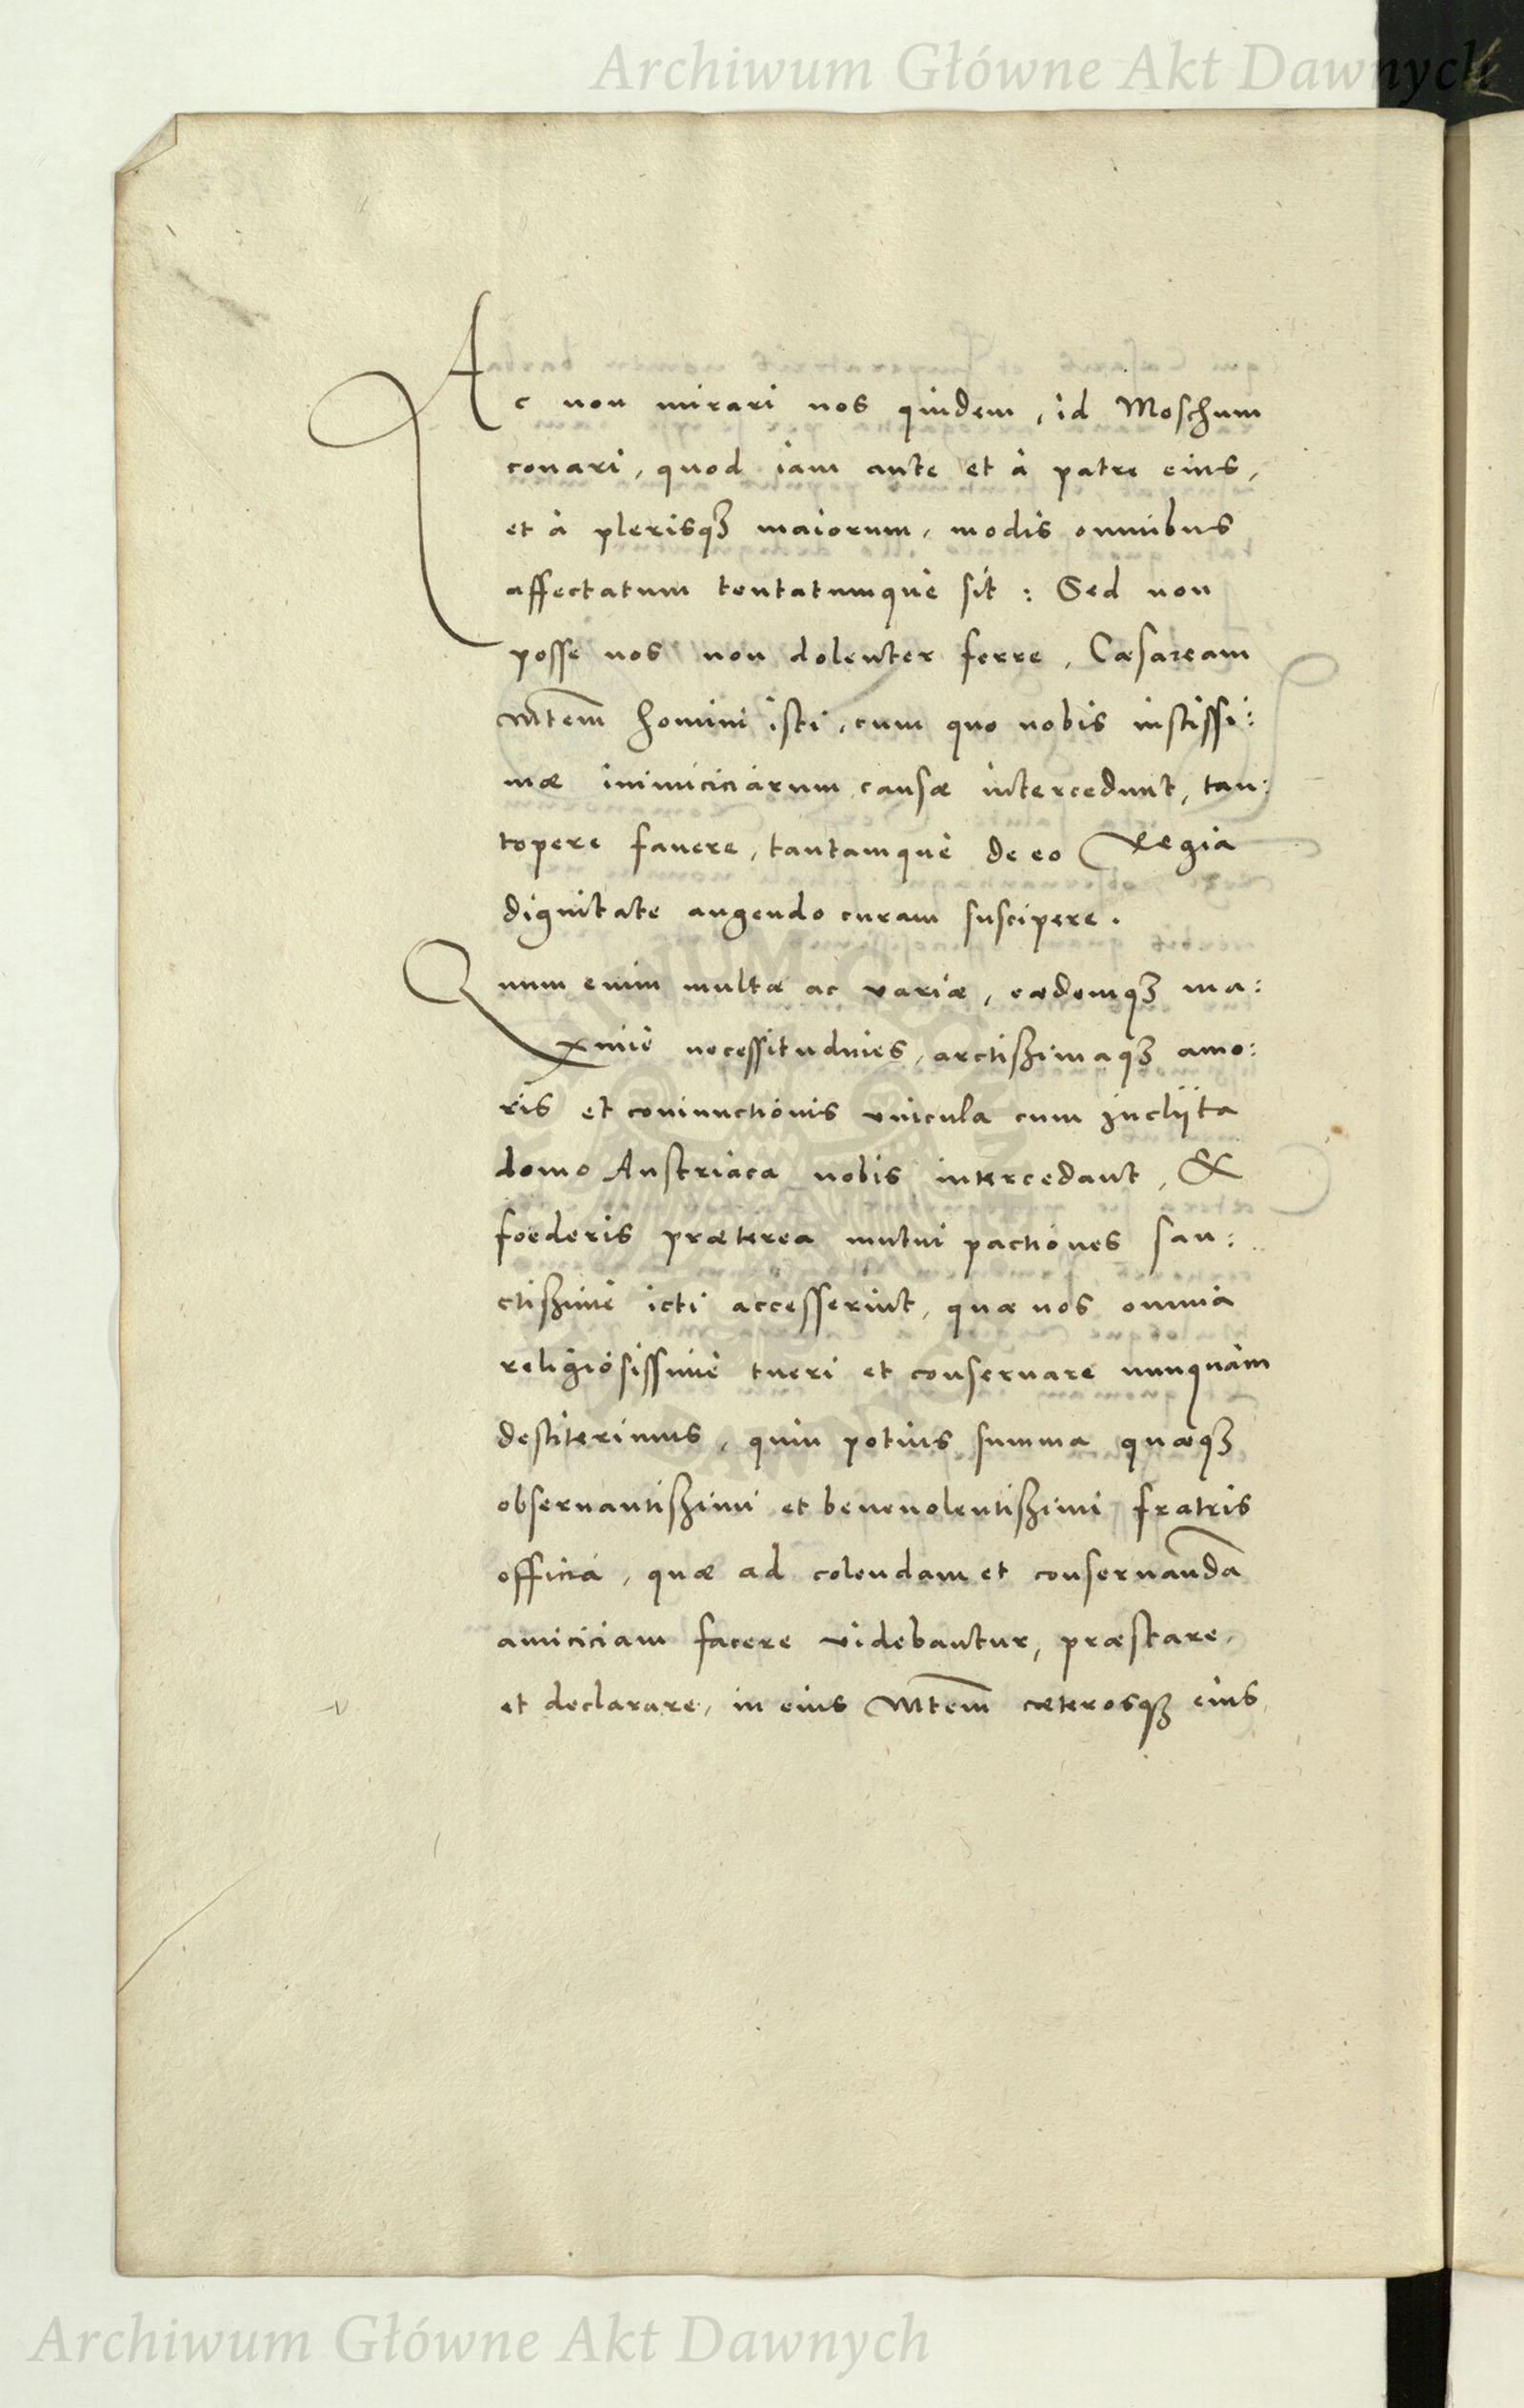 Archiwum Główne Akt Dawnych
Ac non mirari nos quidem, id Moschum
conari, quod iam ante et à patre eius,
et à plerisqꝫ maiorum, modis omnibus
affectatum tentatumquè sit : Sed non
posse nos non dolenter ferre, Cæsaream
Mtem homini isti, cum quo nobis iustissi:
mæ inimiciciarum causæ intercedunt, tan:
topere fauere, tantamquè de eo Regia
dignitate augendo curam suscipere.
Quum enim multæ ac variæ, eædemqꝫ ma:
ximè necessitudines, arctißimaqꝫ amo:
ris et coniunctionis vincula cum inclÿta
domo Austriaca nobis intercedant, &
foederis præterea mutui pactiones san:
ctißimè icti accesserint, quæ nos omnia
religiosissimè tueri et conseruare nunquàm
destiterimus, quin potius summa quæqꝫ
obseruantißimi et beneuolentißimi fratris
officia, quæ ad colendam et conseruandā
amiciciam facere videbantur, præstare,
et declarare, in eius Mtem cæterosqꝫ eius,
Archiwum Główne Akt Dawnych